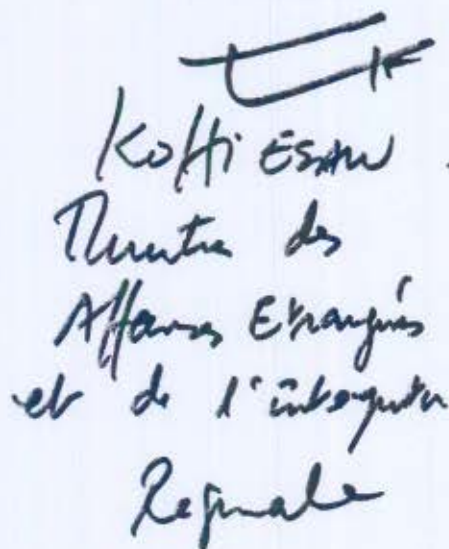 Koffi ESAW
Ministre des
Affaires Etrangères
et de l'intégration
Régionale